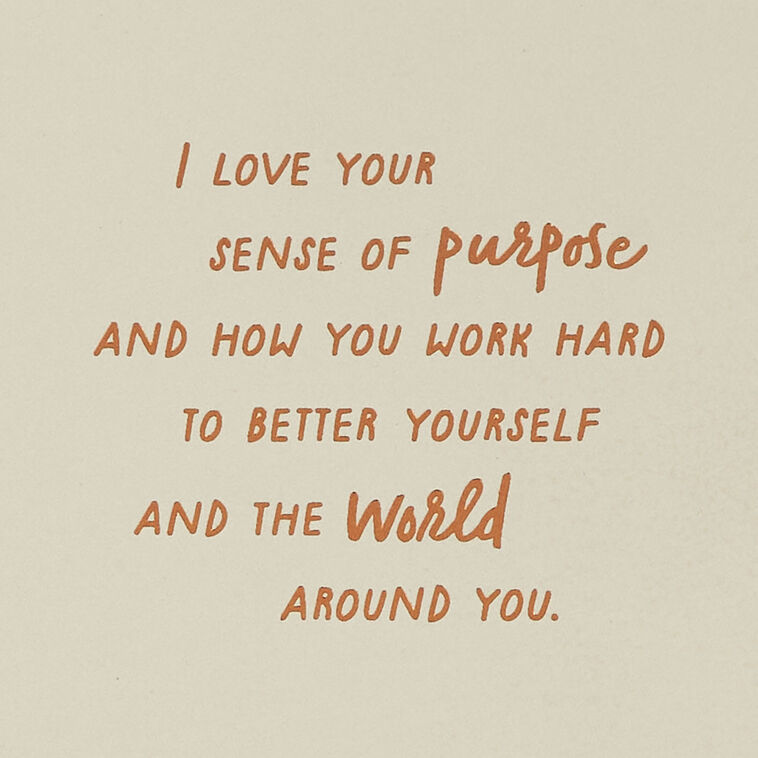 I LOVE YOUR
SENSE OF purpose
AND HOW YOU WORK HARD
TO BETTER YOURSELF
AND THE World
AROUND YOU.